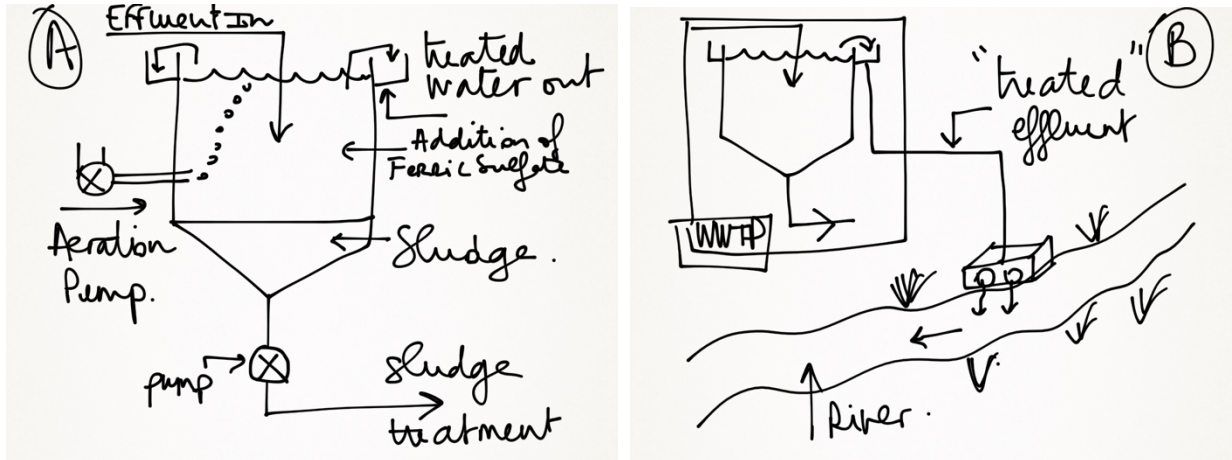 A
Effluent In
treated
water out
Addition of
Ferric Sulfate
Aeration
Pump.
Sludge.
pump
sludge
treatment
B
"treated"
effluent
WWTP
River.